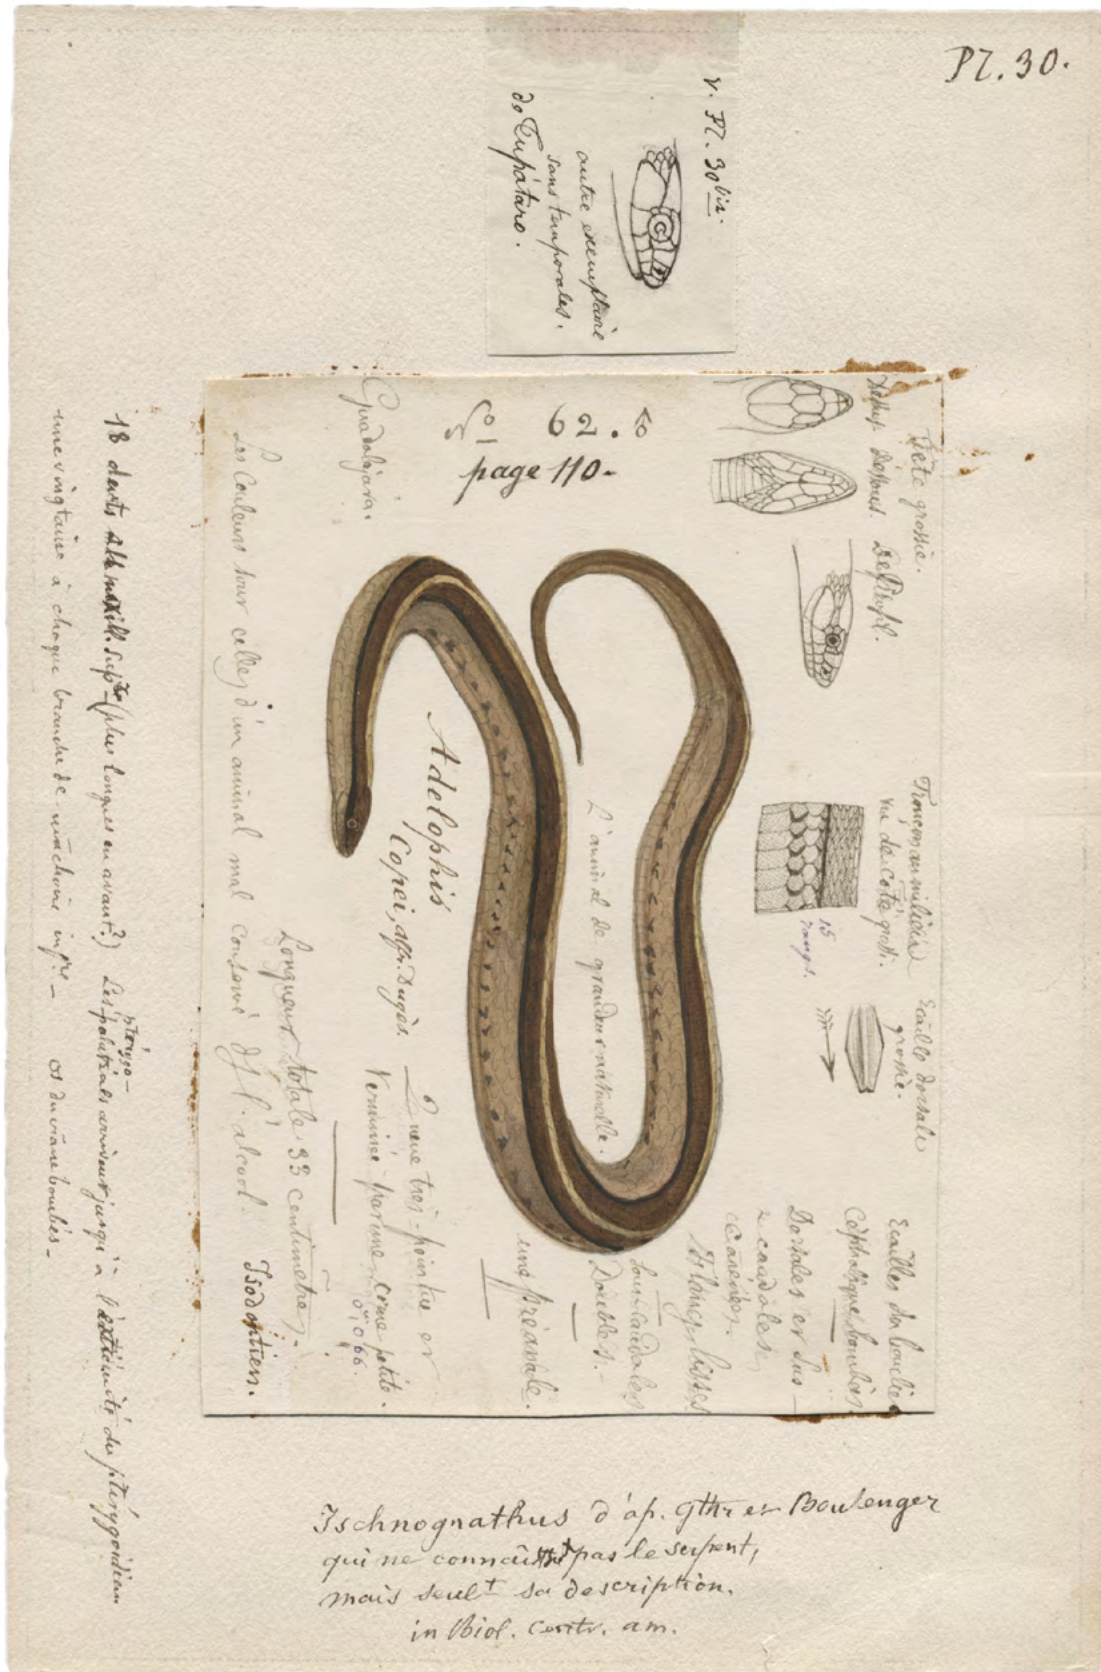 Pl. 30.
v. Pl. 30 bis.
autre exemplaire
sans temporales.
de Tupátaro.
Nº 62. δ
page 110-
Guadalajara.
Tête grossie.
Dessus. Dessous. De Profil.
Tronçon au milieu
vu de côté gross.
15
rangs.
Ecaille dorsale
grossie.
Ecailles du bouclier
Céphalique bombées.
Dorsales et sus-
caudales
Carénées.
lisses
Sous caudales
Doubles.-
une préanale.
L'animal de grandeur naturelle.
Adelophis
Copei, alfr. Dugès.
Queue très-pointue et
Terminée par une corne petite.
0,066.
Longueur totale 33 centimètres.
Les Couleurs sont celles d'un animal mal conservé ds l'alcool.
Isodontien.
18 dents au maxill. supre (plus longues en avant?) Les ptérygo-palatins arrivent jusqu'à l'extrémité du ptérygoïdien
une vingtaine à chaque branche de mâchoire infre - os du crâne bombés -
Ischnognathus d'ap. Gthr et Boulenger
qui ne connaissent pas le serpent,
mais seult sa description.
in Biol. centr. am.